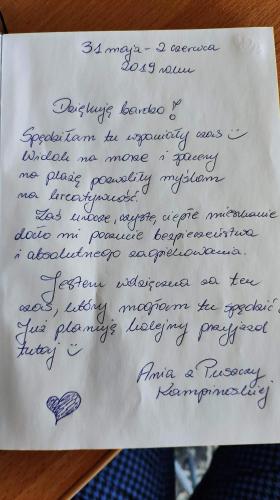 31 maja - 2 czerwca
2019 roku
Dziękuję bardzo!
Spędziłam tu wspaniały czas ☺
Widok na morze i spacery
na plażę pozwoliły myślom
na kreatywność.
Zaś urocze, czyste, ciepłe mieszkanie
dało mi poczucie bezpieczeństwa
i absolutnego zaopiekowania.
Jestem wdzięczna za ten
czas, który mogłam tu spędzić.
Już planuję kolejny przyjazd
tutaj ☺
Ania z Puszczy
Kampinoskiej